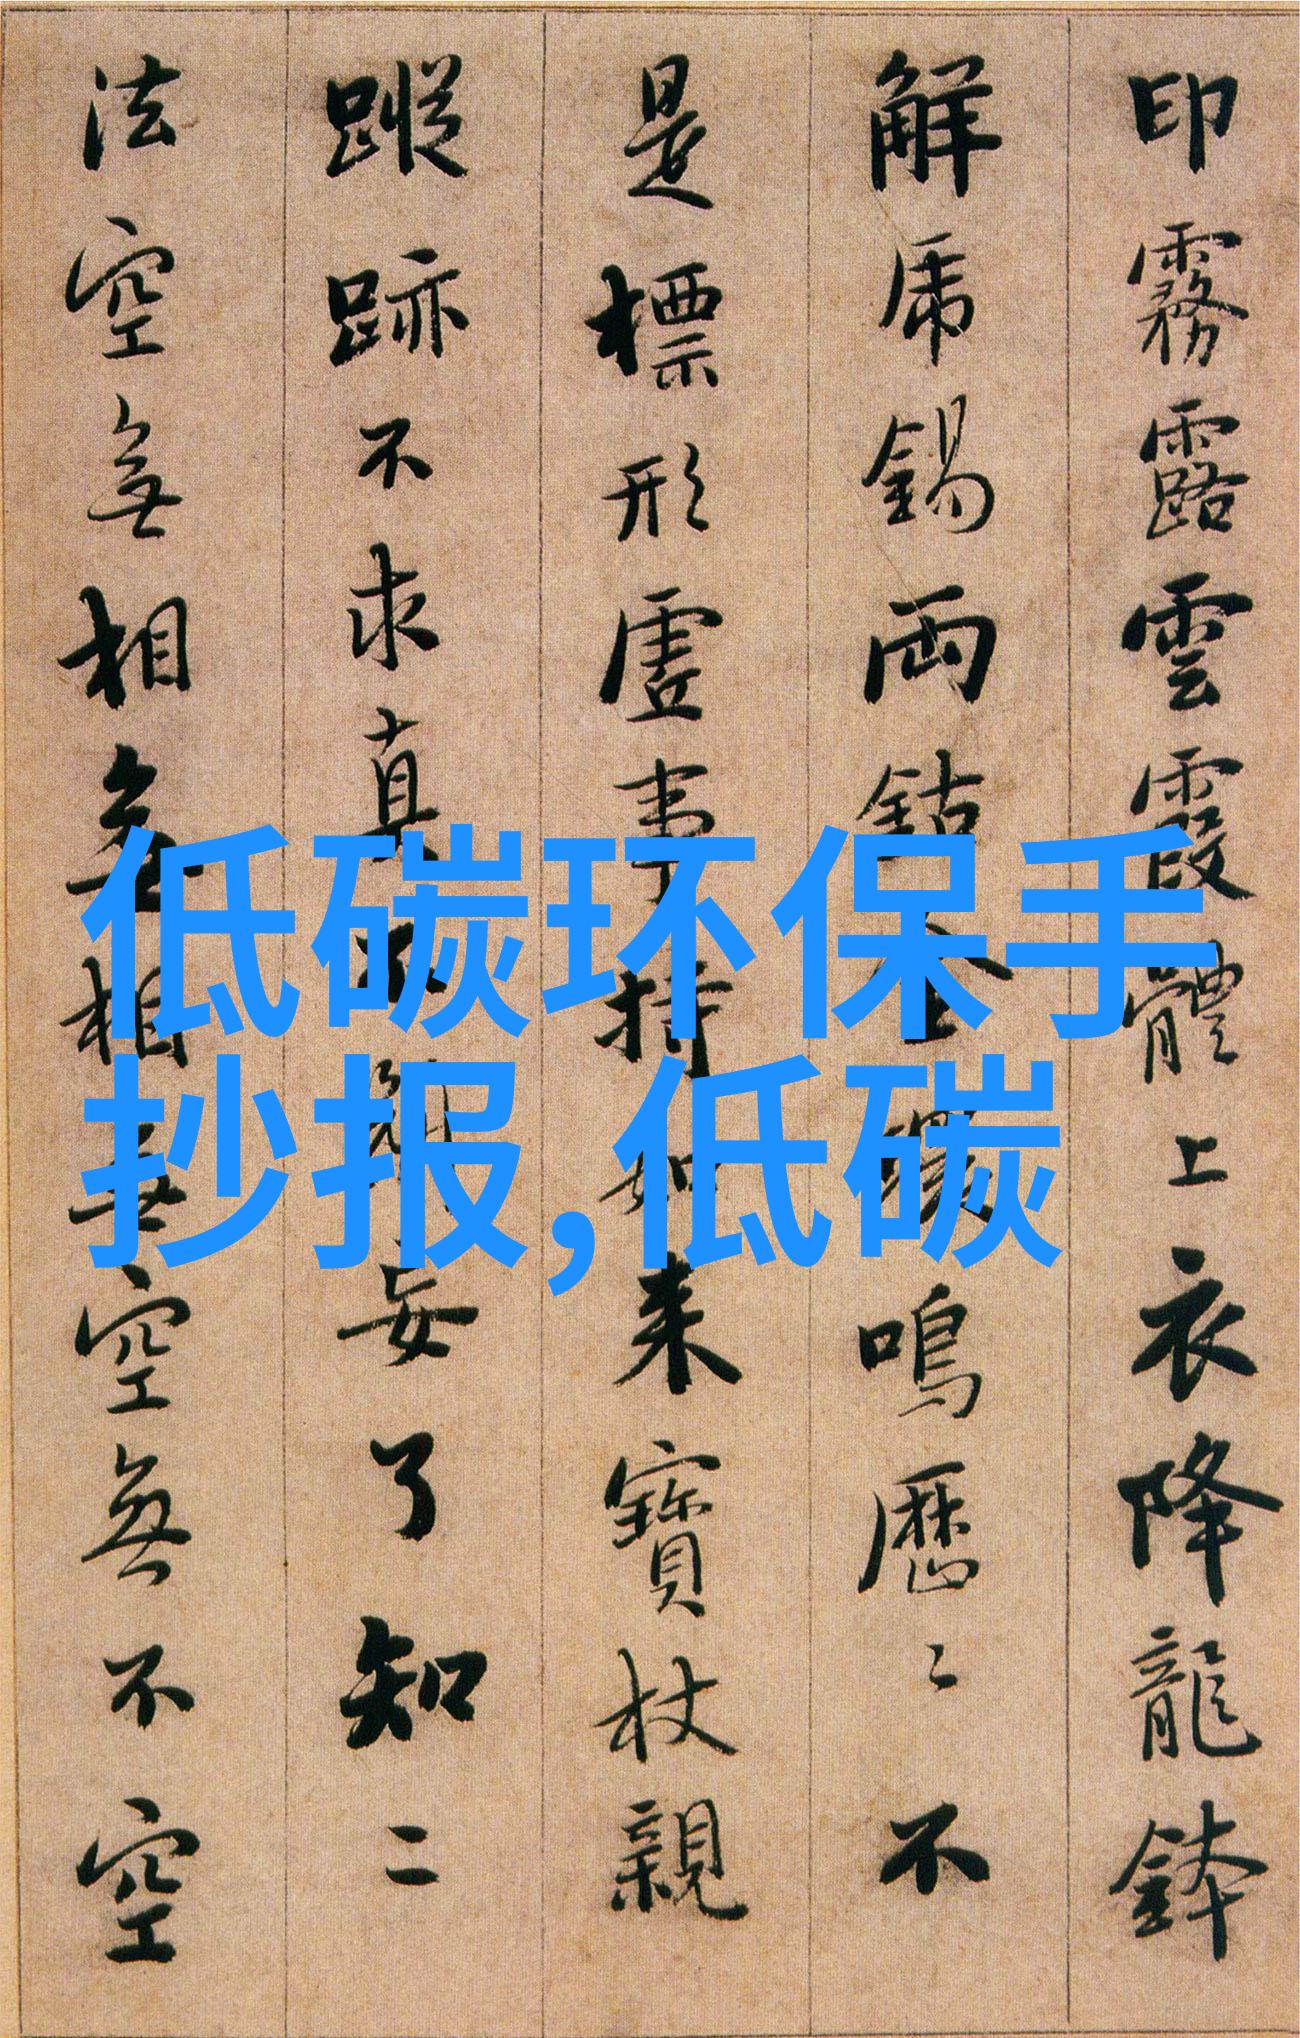 印霧露雲霞體上衣降龍鉢
解虎錫兩鈷金鳴歷〻不
是標形虛事持如来寶杖親
蹤跡不求真不妄了知二
法空無相無相無空無不空
低碳环保手
抄报,低碳